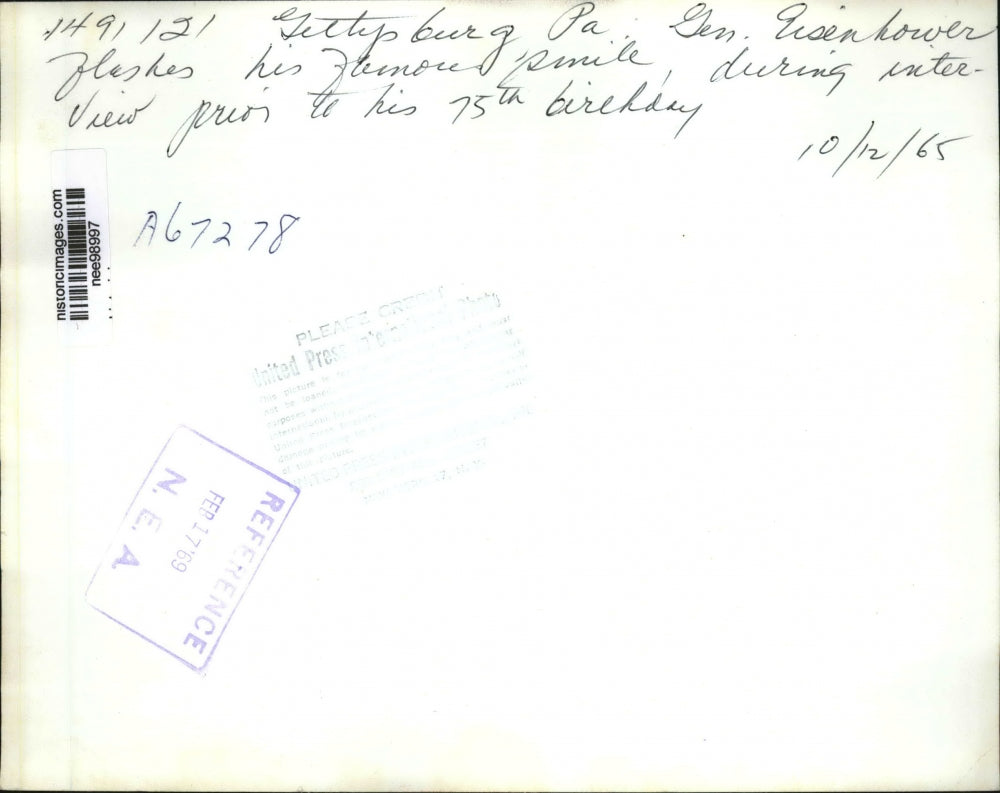 1491121 Gettysburg Pa. Gen. Eisenhower
flashes his famous smile, during inter-
view prior to his 75th birthday
10/12/65
historicimages.com
nee98997
A67278
PLEASE CREDIT
United Press Photo
This picture is for
not be loaned
purposes
of this picture.
REFERENCE
FEB 17 '69
N. E. A.